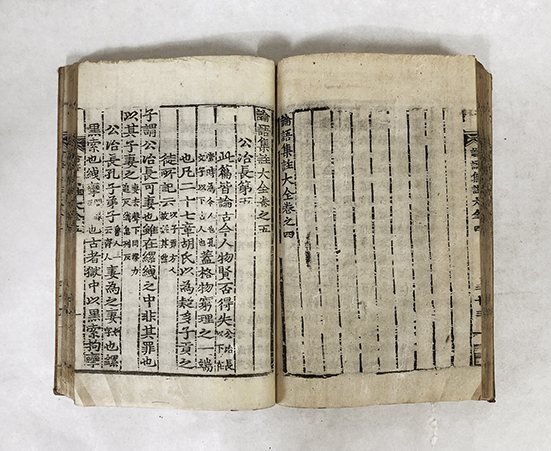 論語集註大全卷之四
論語集註大全卷之五
公冶長第五
此篇皆論古今人物賢否得失
蓋格物窮理之一端
也凡二十七章胡氏以為疑多子貢之
徒所記云
子謂公冶長可妻也雖在縲絏之中非其罪也
以其子妻之
公冶長孔子弟子妻爲之妻也縲
黑索也絏攣也古者獄中以黑索拘攣